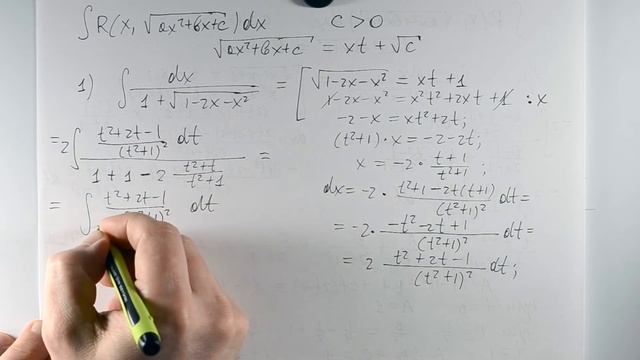 ∫R(x, √ax²+bx+c) dx   c > 0
√ax²+bx+c = xt + √c
1) ∫ dx / (1 + √1-2x-x²) = [ √1-2x-x² = xt + 1
1 - 2x - x² = x²t² + 2xt + 1 : x
-2 - x = xt² + 2t;
(t²+1)·x = -2 - 2t;
x = -2 · (t+1)/(t²+1) ;
dx = -2 · (t²+1-2t(t+1))/(t²+1)² dt =
= -2 · (-t²-2t+1)/(t²+1)² dt =
= 2 (t²+2t-1)/(t²+1)² dt ;
= 2∫ ((t²+2t-1)/(t²+1)² dt) / (1 + 1 - 2 (t²+t)/(t²+1)) =
= ∫ (t²+2t-1) dt